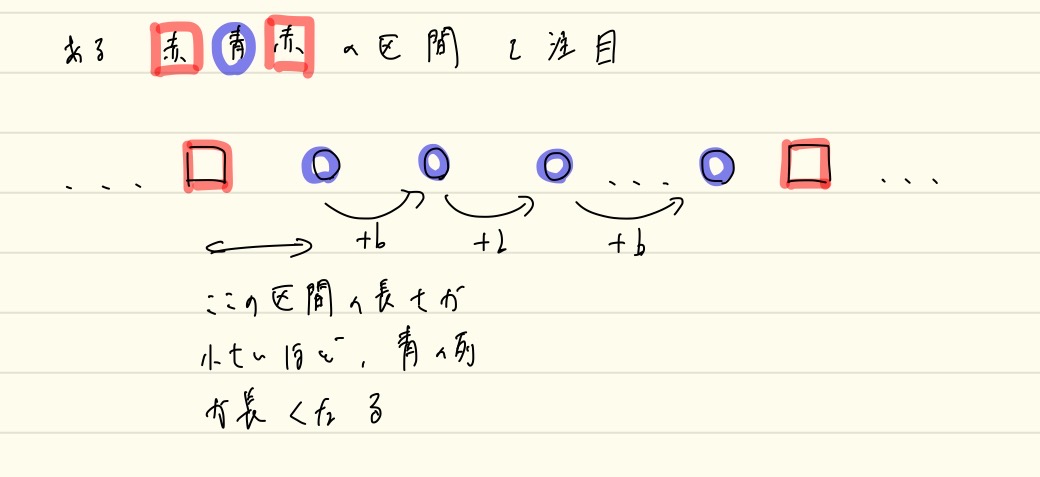 ある 赤 青 赤 の区間に注目
+b +b +b
ここの区間の長さが
小さいほど、青の列
が長くなる